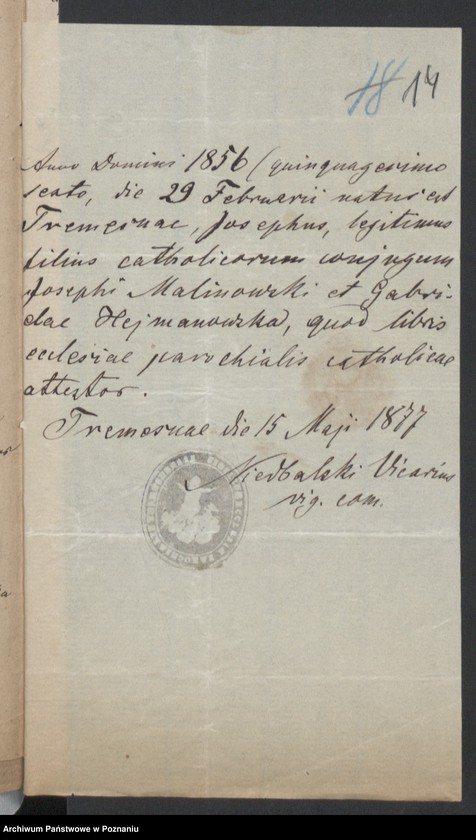 18 14
Anno Domini 1856 (quinquagesimo
sexto, die 29 Februarii natus est
Tremesnae, Josephus, legitimus
filius catholicorum conjugum
Josephi Malinowski et Gabri-
elae Hejmanowska, quod libris
ecclesiae parochialis catholicae
attestor.
Tremesnae die 15 Maji 1877
Niedbalski Vicarius
vig. com.
Archiwum Państwowe w Poznaniu